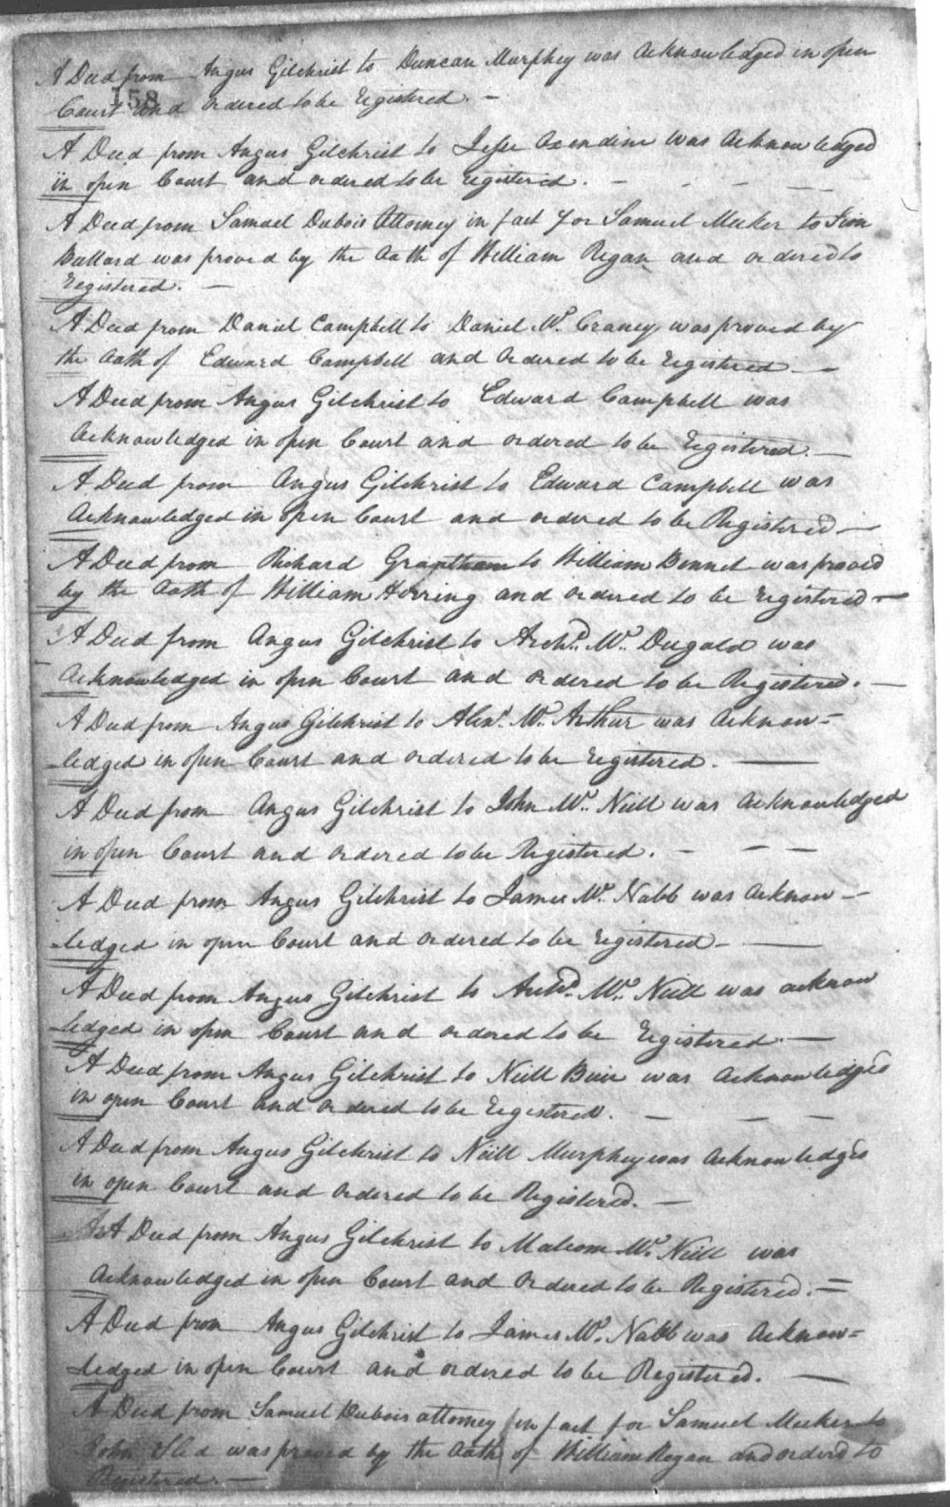 A Deed from Angus Gilchrist to Duncan Murphey was Acknowledged in open
158
Court and ordered to be registered. -
A Deed from Angus Gilchrist to Jesse Oxendine was Acknowledged
in open Court and ordered to be registered. - - - -
A Deed from Samuel Dubois Attorney in fact for Samuel Meeker to
Bullard was proved by the Oath of William Regan and ordered to
Registered. -
A Deed from Daniel Campbell to Daniel Mc. Craney was proved by
the Oath of Edward Campbell and Ordered to be registered -
A Deed from Angus Gilchrist to Edward Campbell was
Acknowledged in open Court and ordered to be registered. -
A Deed from Angus Gilchrist to Edward Campbell was
Acknowledged in open Court and ordered to be Registered -
A Deed from Richard Grantham to William Bennet was proved
by the Oath of William Herring and ordered to be registered -
A Deed from Angus Gilchrist to Archd. Mc. Dugald was
Acknowledged in open Court and ordered to be Registered. -
A Deed from Angus Gilchrist to Alexr. Mc. Arthur was Acknow=
=ledged in open Court and ordered to be registered. -
A Deed from Angus Gilchrist to John Mc. Neill was Acknowledged
in open Court and ordered to be Registered. - - -
A Deed from Angus Gilchrist to James Mc. Nabb was Acknow-
-ledged in open Court and ordered to be registered - -
A Deed from Angus Gilchrist to Archd. Mc. Neill was acknow
-ledged in open Court and ordered to be registered. -
A Deed from Angus Gilchrist to Neill Buie was Acknowledged
in open Court and ordered to be registered. - - -
A Deed from Angus Gilchrist to Neill Murphey was Acknowledged
in open Court and ordered to be Registered. -
A Deed from Angus Gilchrist to Malcom Mc. Neill was
Acknowledged in open Court and ordered to be Registered. =
A Deed from Angus Gilchrist to James Mc. Nabb was Acknow=
=ledged in open Court and ordered to be Registered. -
A Deed from Samuel Dubois attorney in fact for Samuel Meeker to
John was proved by the Oath of William Regan and ordered to
Registered. -